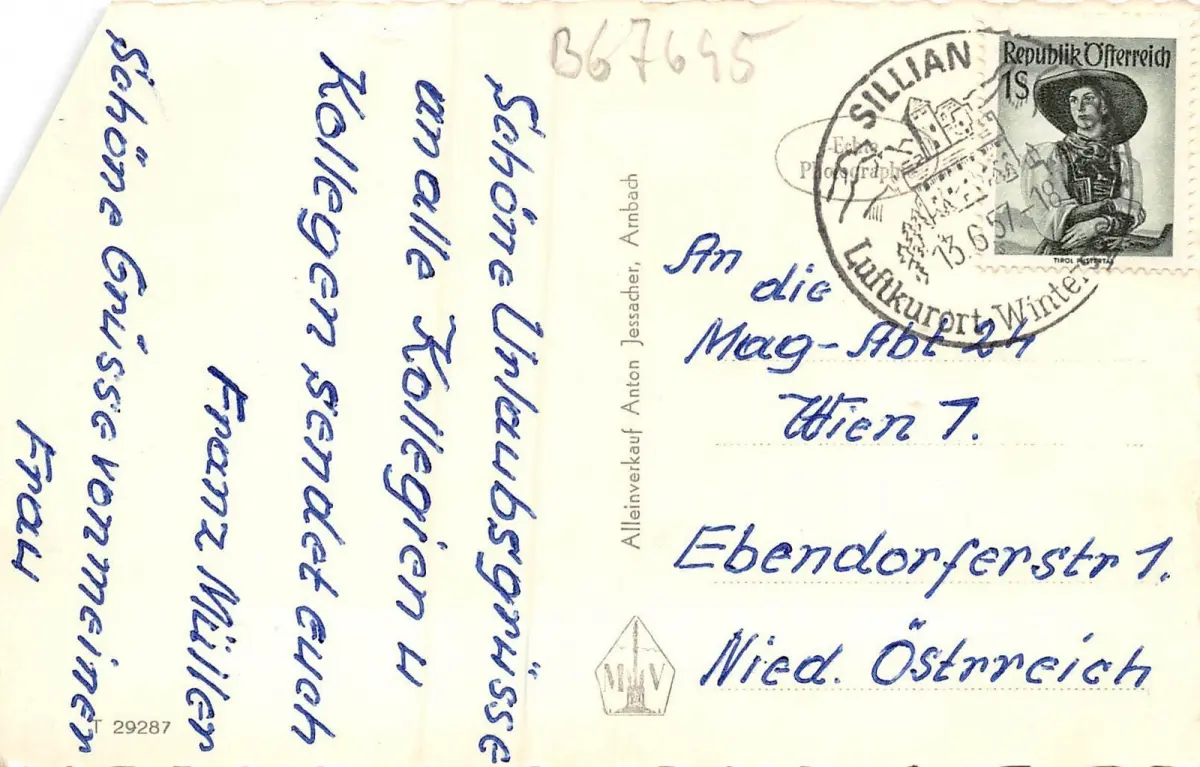 B67645
Schöne Urlaubsgrüsse
an alle Kollegien u
Kollegen sendet euch
Franz Müller
Schöne Grüsse von meiner
Frau
T 29287
Alleinverkauf Anton Jessacher, Arnbach
M V
Echte
Photographie
SILLIAN
13.6.57-18
Luftkurort-Winter
Republik Österreich
1S
TIROL PUSTERTAL
An
die
Mag-Abt 24
Wien 1.
Ebendorferstr 1.
Nied. Östrreich